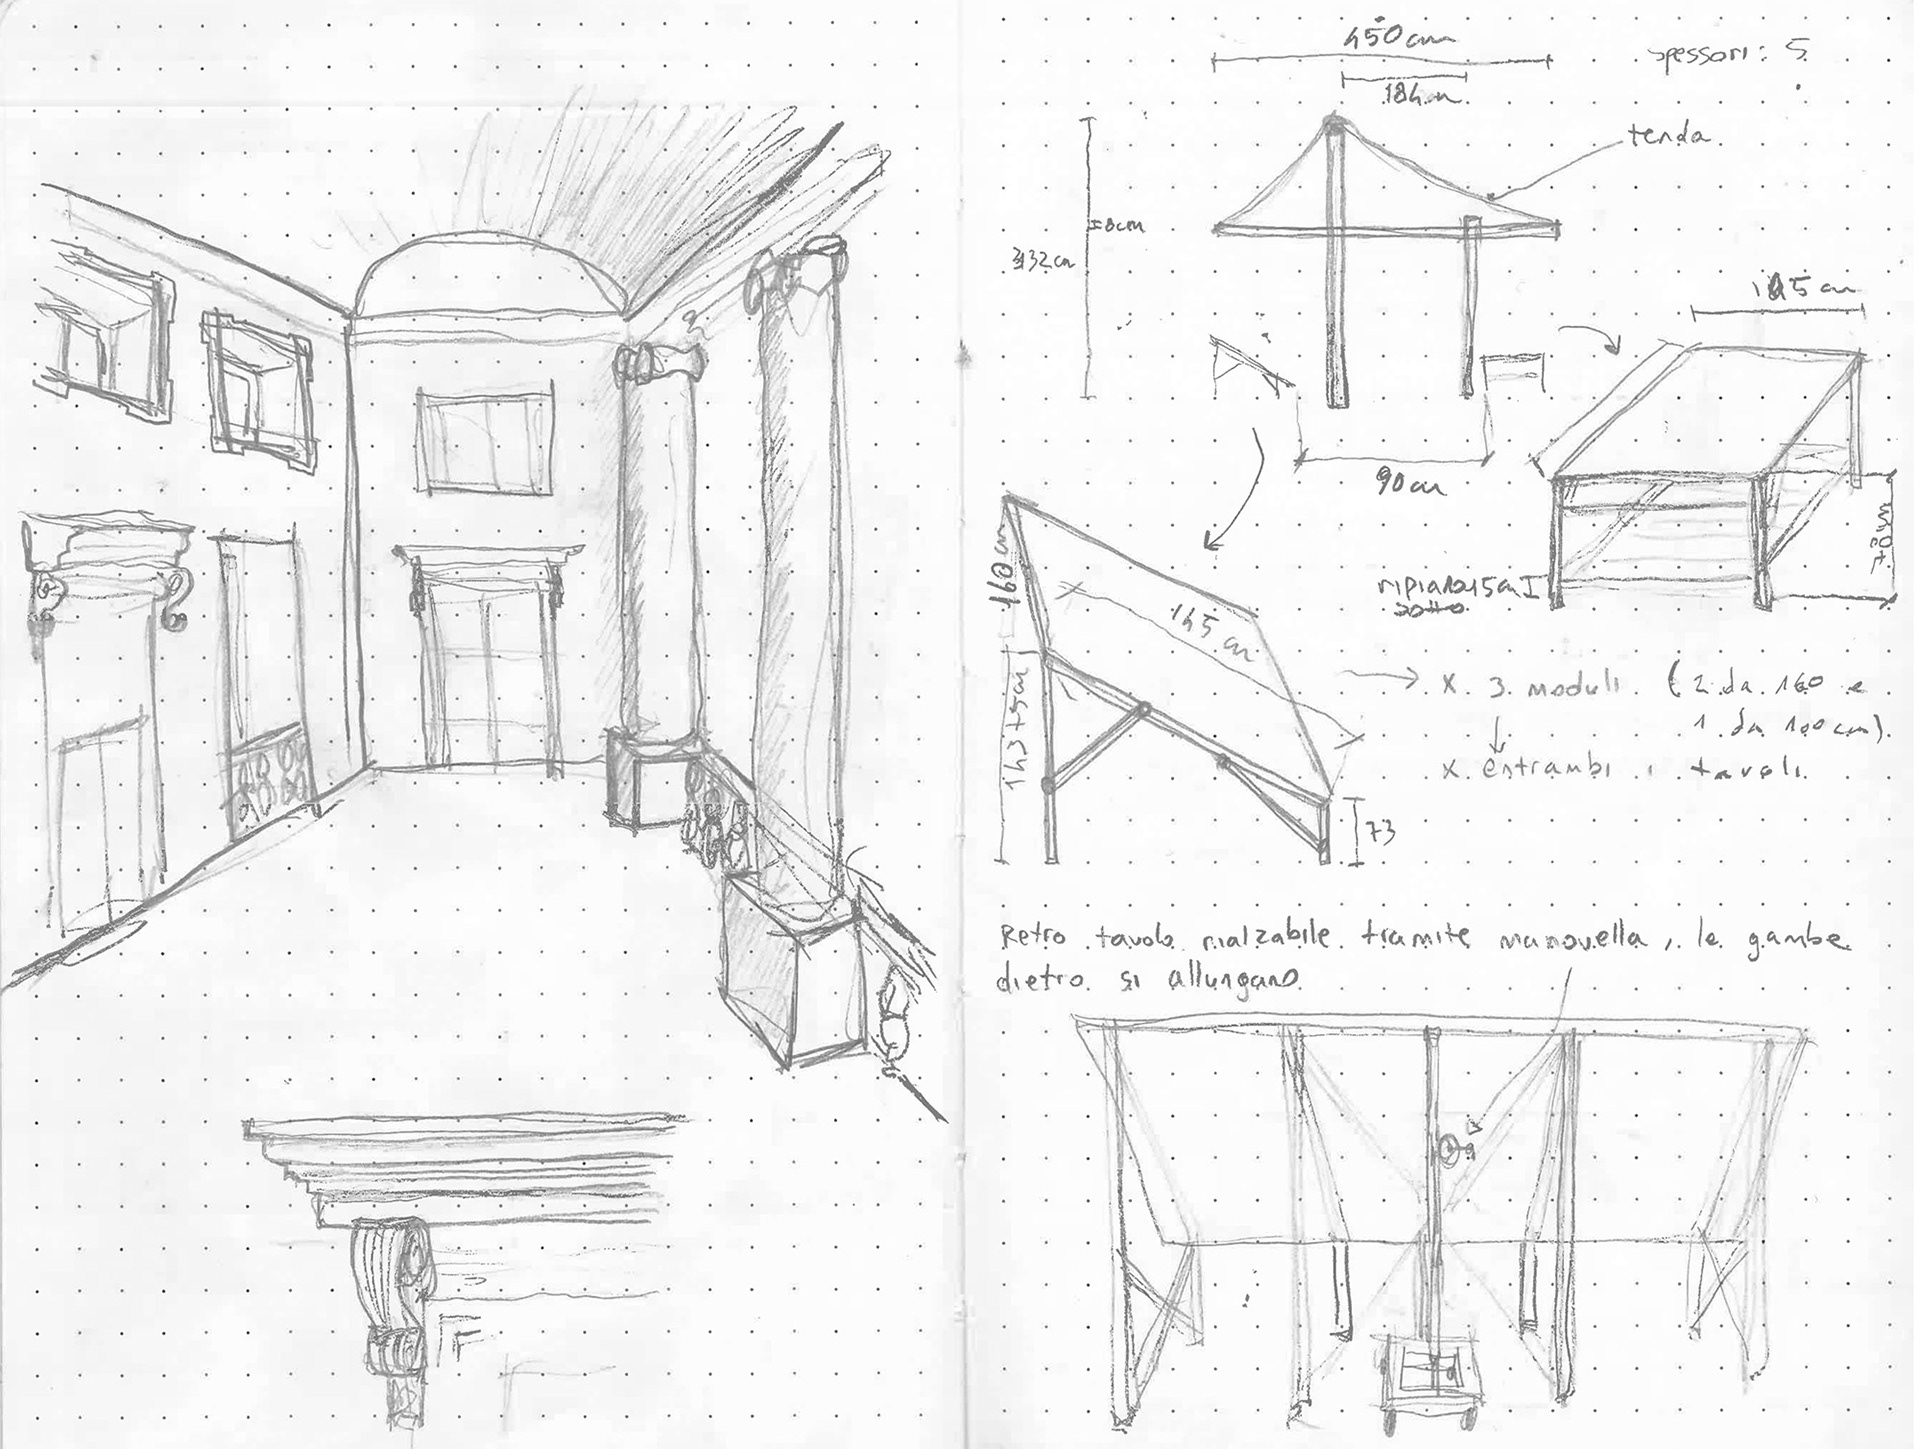 450cm
spessori: 5
184cm
tenda
18cm
332cm
145 cm
90cm
160cm
145 cm
ripiano 15cm
sotto
x 3 moduli (2 da 160 e
1 da 100cm).
x entrambi i tavoli.
73
Retro tavolo rialzabile tramite manovella, le gambe
dietro si allungano